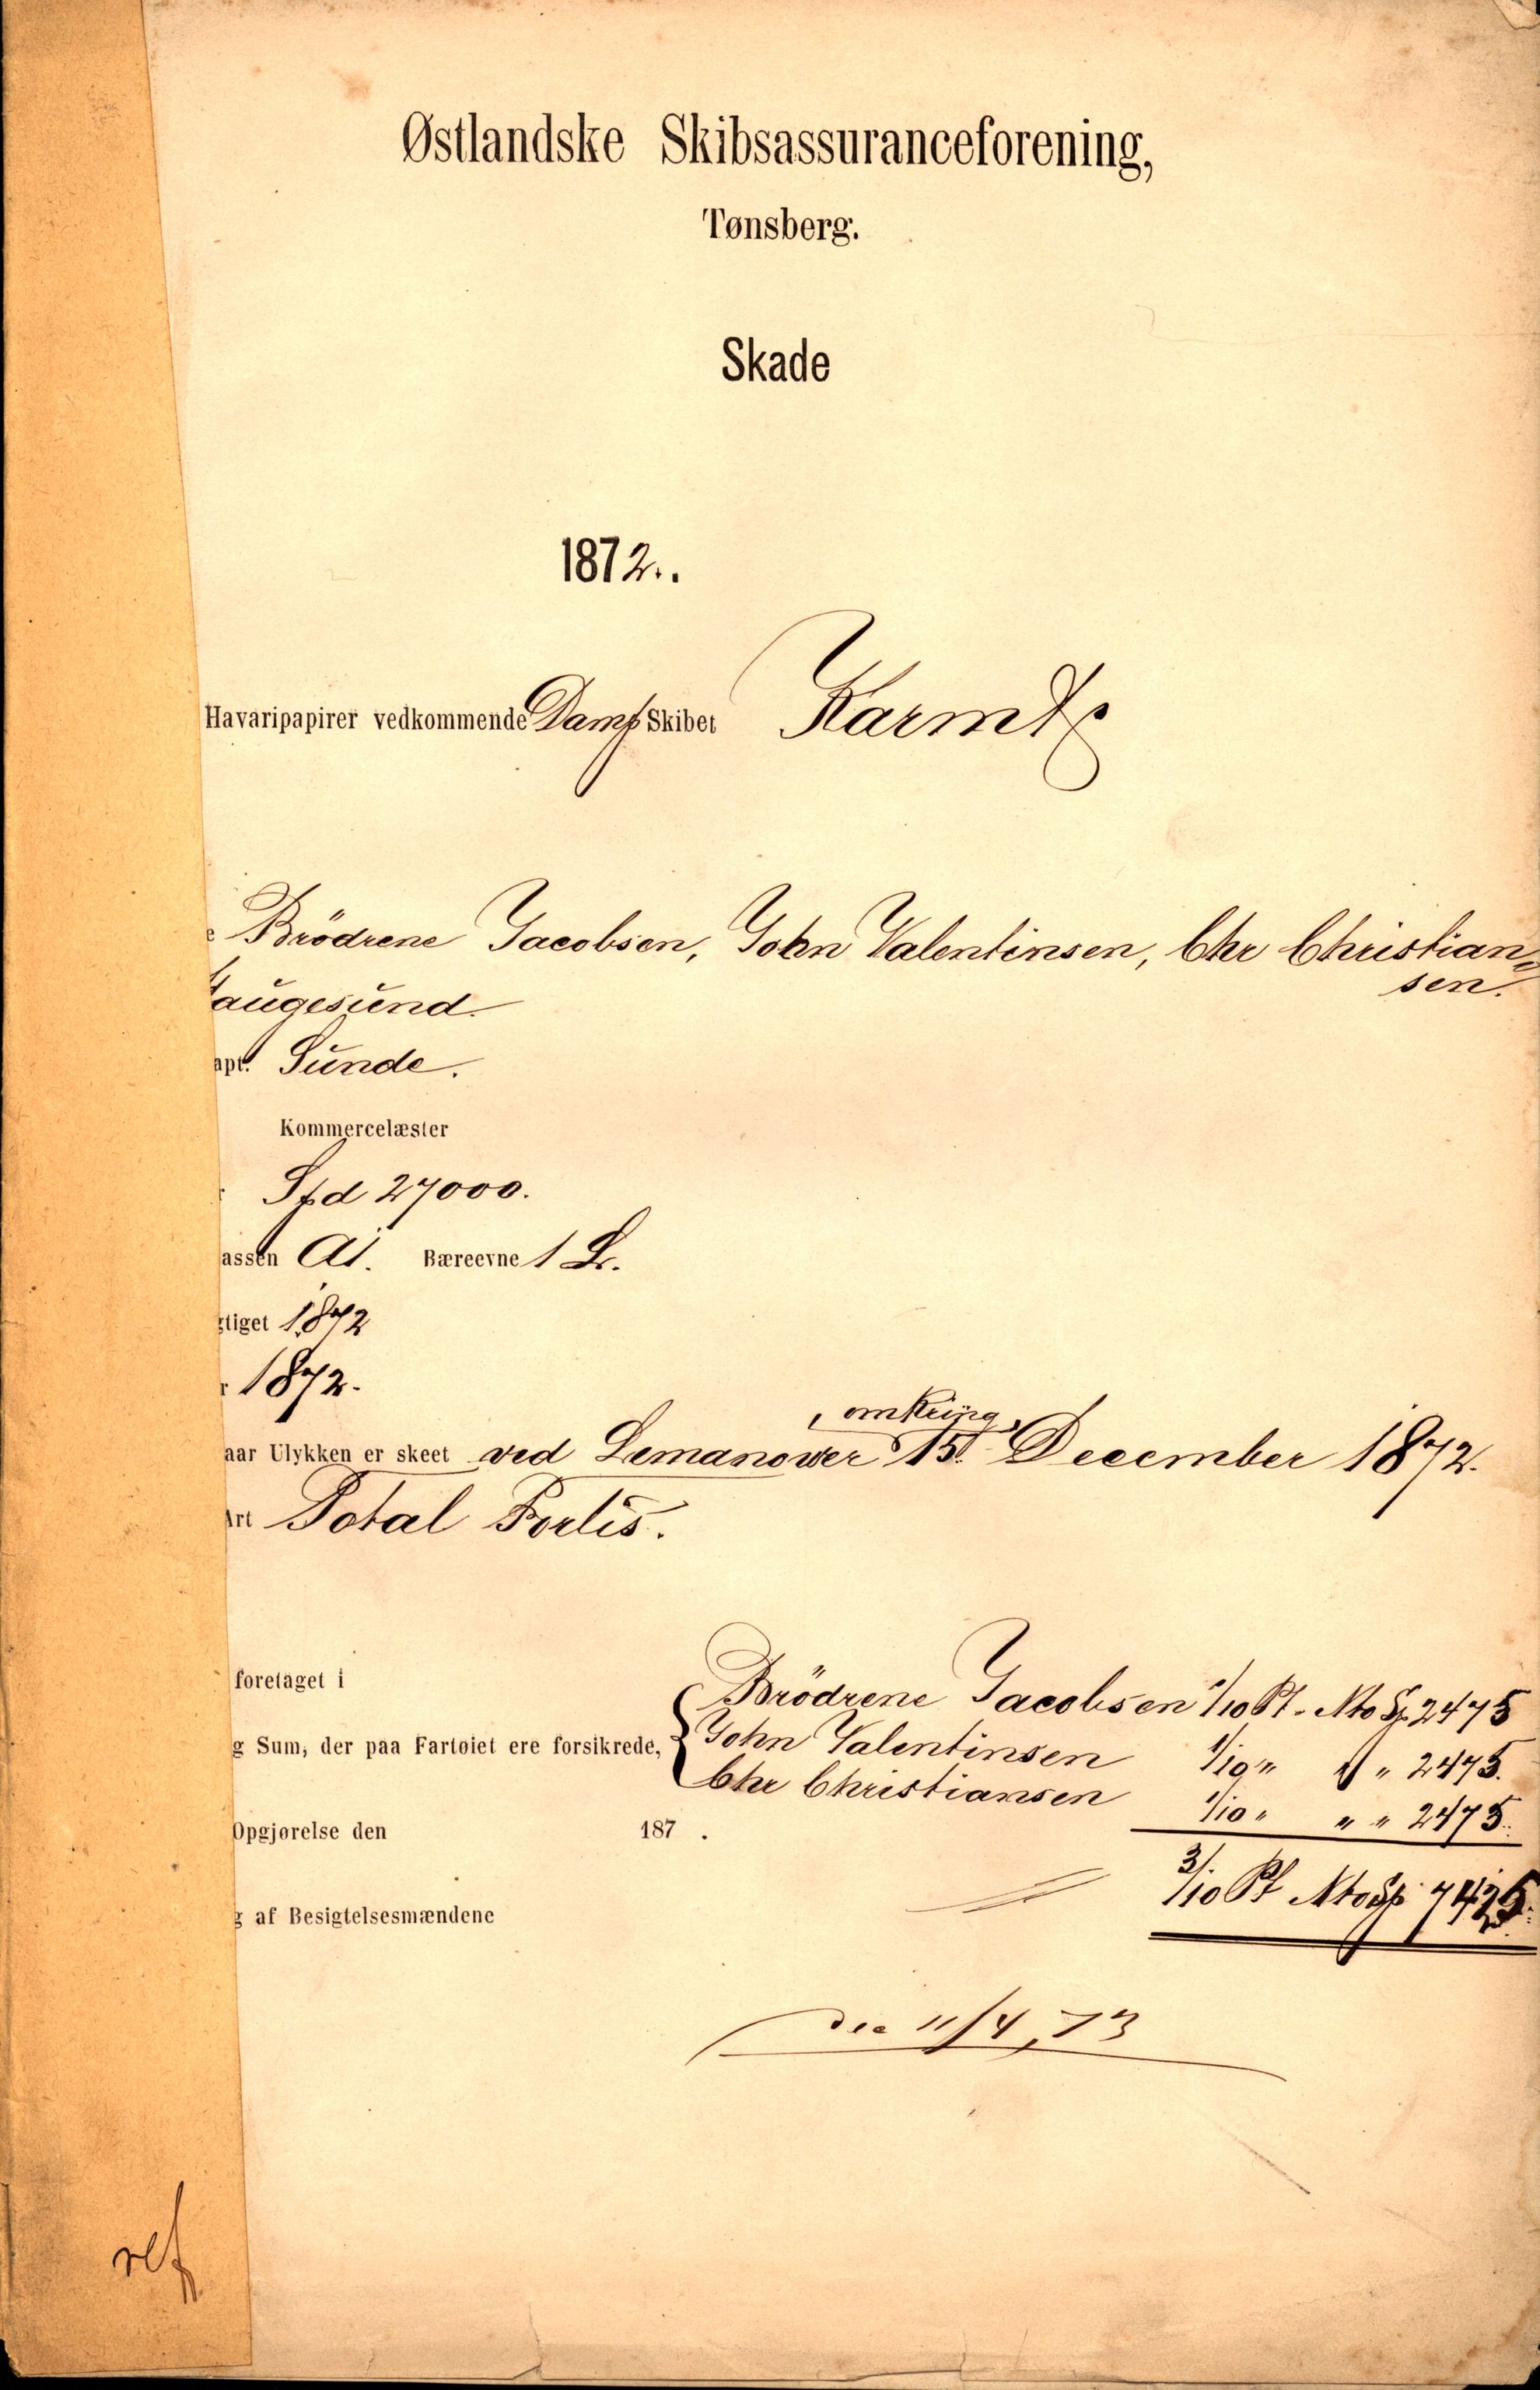 Østlandske Skibsassuranceforening,
Tønsberg.
Skade
1872.
Havaripapirer vedkommende Damp Skibet Karmt
e Brödrene Jacobsen, John Valentinsen, Chr Christian=
sen.
augesund.
apt. Sunde.
Kommercelæster
Spd 27000.
assen A1. Bæreevne 1 L.
gtiget 1872
r 1872.
omkring
aar Ulykken er skeet ved Lemanower 15d December 1872.
Art Total Forlis.
foretaget i
Brödrene Jacobsen 1/10 Pt. Nto Sp 2475
g Sum, der paa Fartøiet ere forsikrede, John Valentinsen 1/10 " " " 2475.
Chr Christiansen 1/10 " " " 2475.
Opgjørelse den 187 .
3/10 Pt Nto Sp 7425.
g af Besigtelsesmændene
11/4, 73
ref